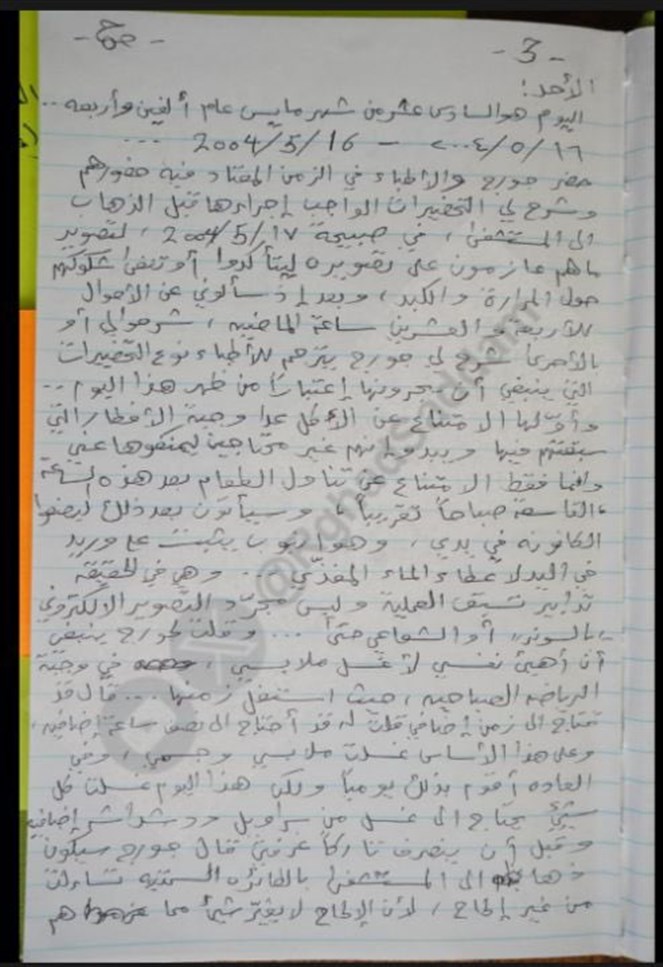 - 3 -
الأحد:
اليوم هو السادس عشر من شهر مايس عام ألفين وأربعه ..
١٦/٥/٢٠٠٤ - 2004/5/16 ...
حضر جورج والأطباء في الزمن المعتاد فيه حضورهم
وشرح لي التحضيرات الواجب إجراءها قبل الذهاب
الى المستشفى، في صبيحة 2004/5/17، لتصوير
ما هم عازمون على تصويره ليتأكدوا أو تنفى شكوكهم
حول المرارة والكبد، وبعد إذ سألوني عن الأحوال
للأربعة والعشرين ساعة الماضيه، شرحوا لي أو
بالأحرى شرح لي جورج يترجم للأطباء نوع التحضيرات
التي ينبغي أن يجرونها إعتباراً من ظهر هذا اليوم ..
وأولها الامتناع عن الأكل عدا وجبة الأفطار التي
سبقتهم فيها ويبدو إنهم غير محتاجين ليمنعوها عني
وانما فقط الامتناع عن تناول الطعام بعد هذه الساعة
"التاسعة صباحاً تقريباً" وسيأتون بعد ذلك ليضعوا
الكانونه في يدي، وهو انبوب يثبت على وريد
في اليد لاعطاء الماء المغذّي ... وهي في الحقيقة
تدابير تسبق العملية وليس مجرّد التصوير الالكتروني
"بالسونر" أو الشعاعي حتى ... وقلت لجورج ينبغي
أن أهيئ نفسي لأغسل ملابسي، في وجبة
الرياضه الصباحيه، حيث استغل زمنها .... قال قد
تحتاج الى زمن إضافي قلت له قد أحتاج الى نصف ساعة إضافيه،
وعلى هذا الأساس غسلت ملابسي وجسمي، وفي
العاده أقوم بذلك يومياً ولكن هذا اليوم غسلت كل
شيئ يحتاج الى غسل من سراويل ودشداشه إضافيه
وقبل أن ينصرف تاركاً غرفتي قال جورج سيكون
ذهابك الى المستشفى بالطائره السمتيه تساءلت
من غير إلحاح، لأن الإلحاح لا يغيّر شيئاً مما هم
@RghadSaddam